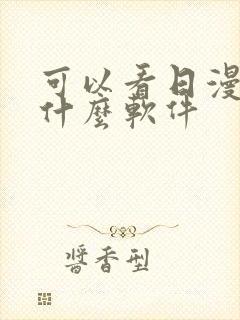 可以看日漫
什麼軟件
醬香型